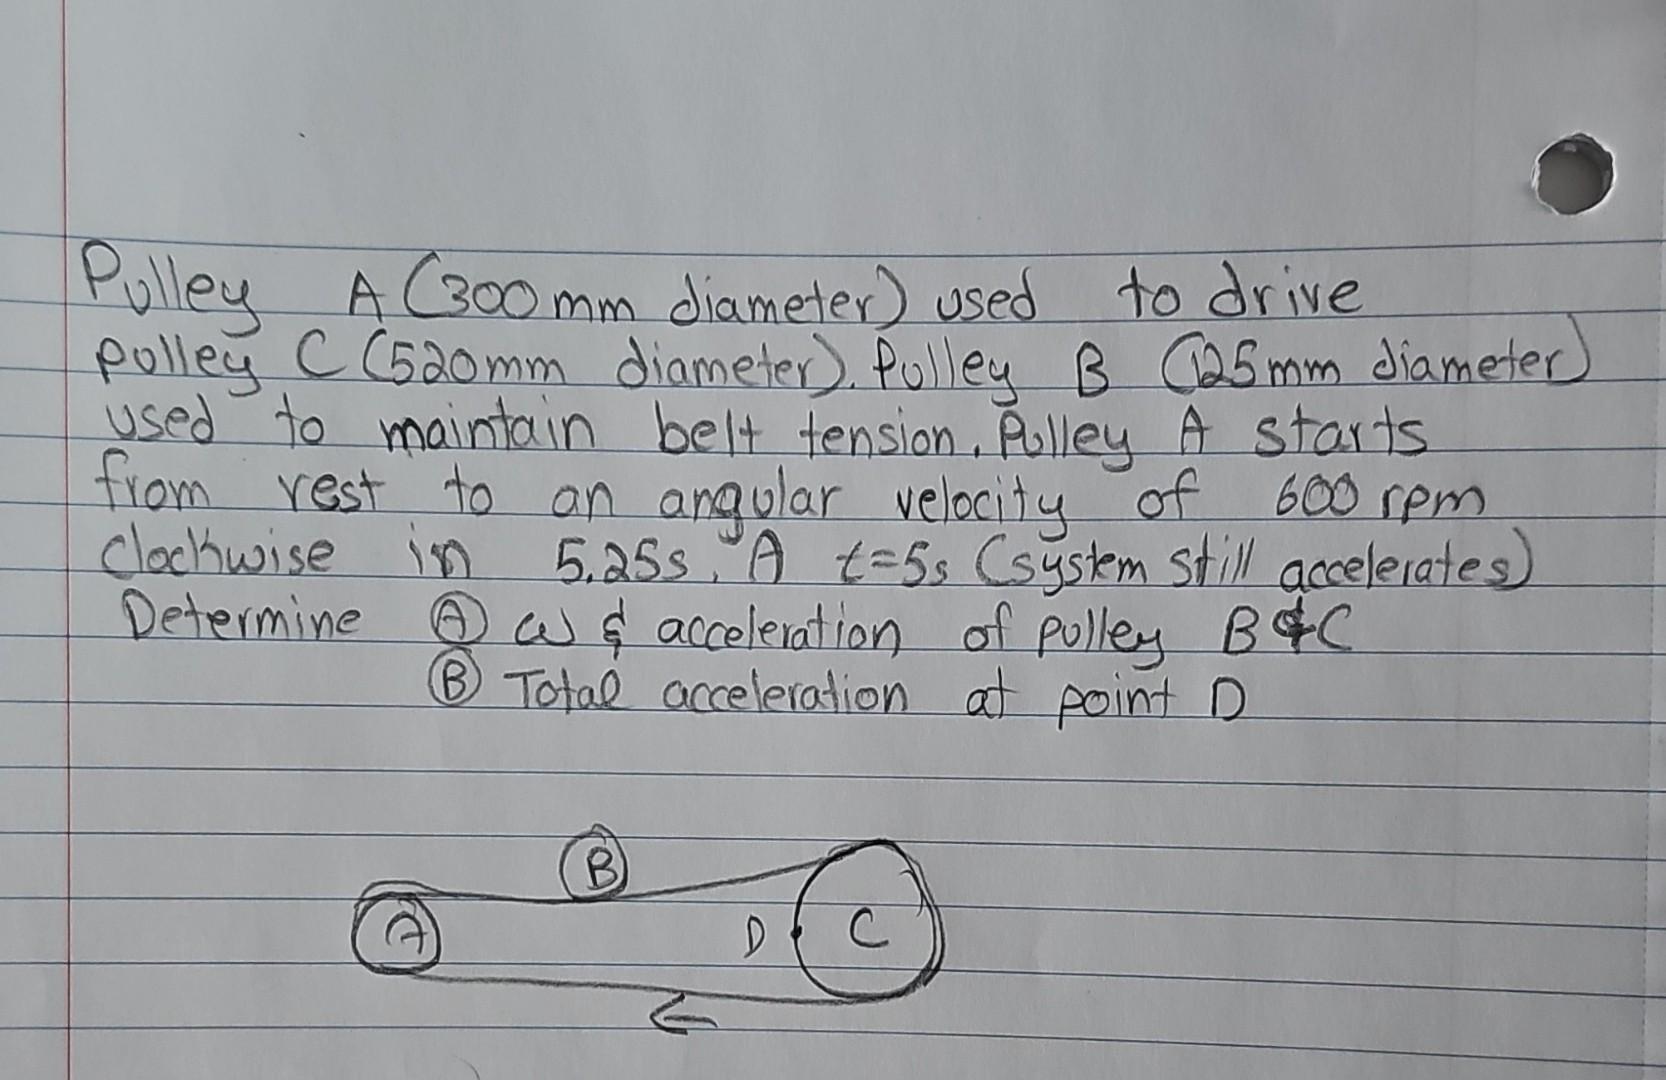 Pulley A (300mm diameter) used to drive
pulley C (520mm diameter). Pulley B (125mm diameter)
used to maintain belt tension. Pulley A starts
from rest to an angular velocity of 600 rpm
clockwise in 5.25s. A t=5s (system still accelerates)
Determine Ⓐ ω & acceleration of pulley B & C
Ⓑ Total acceleration at point D
B
A D C